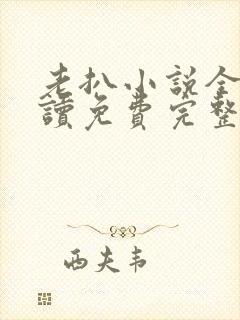 老扒小説全
讀免費完整
西夫韦